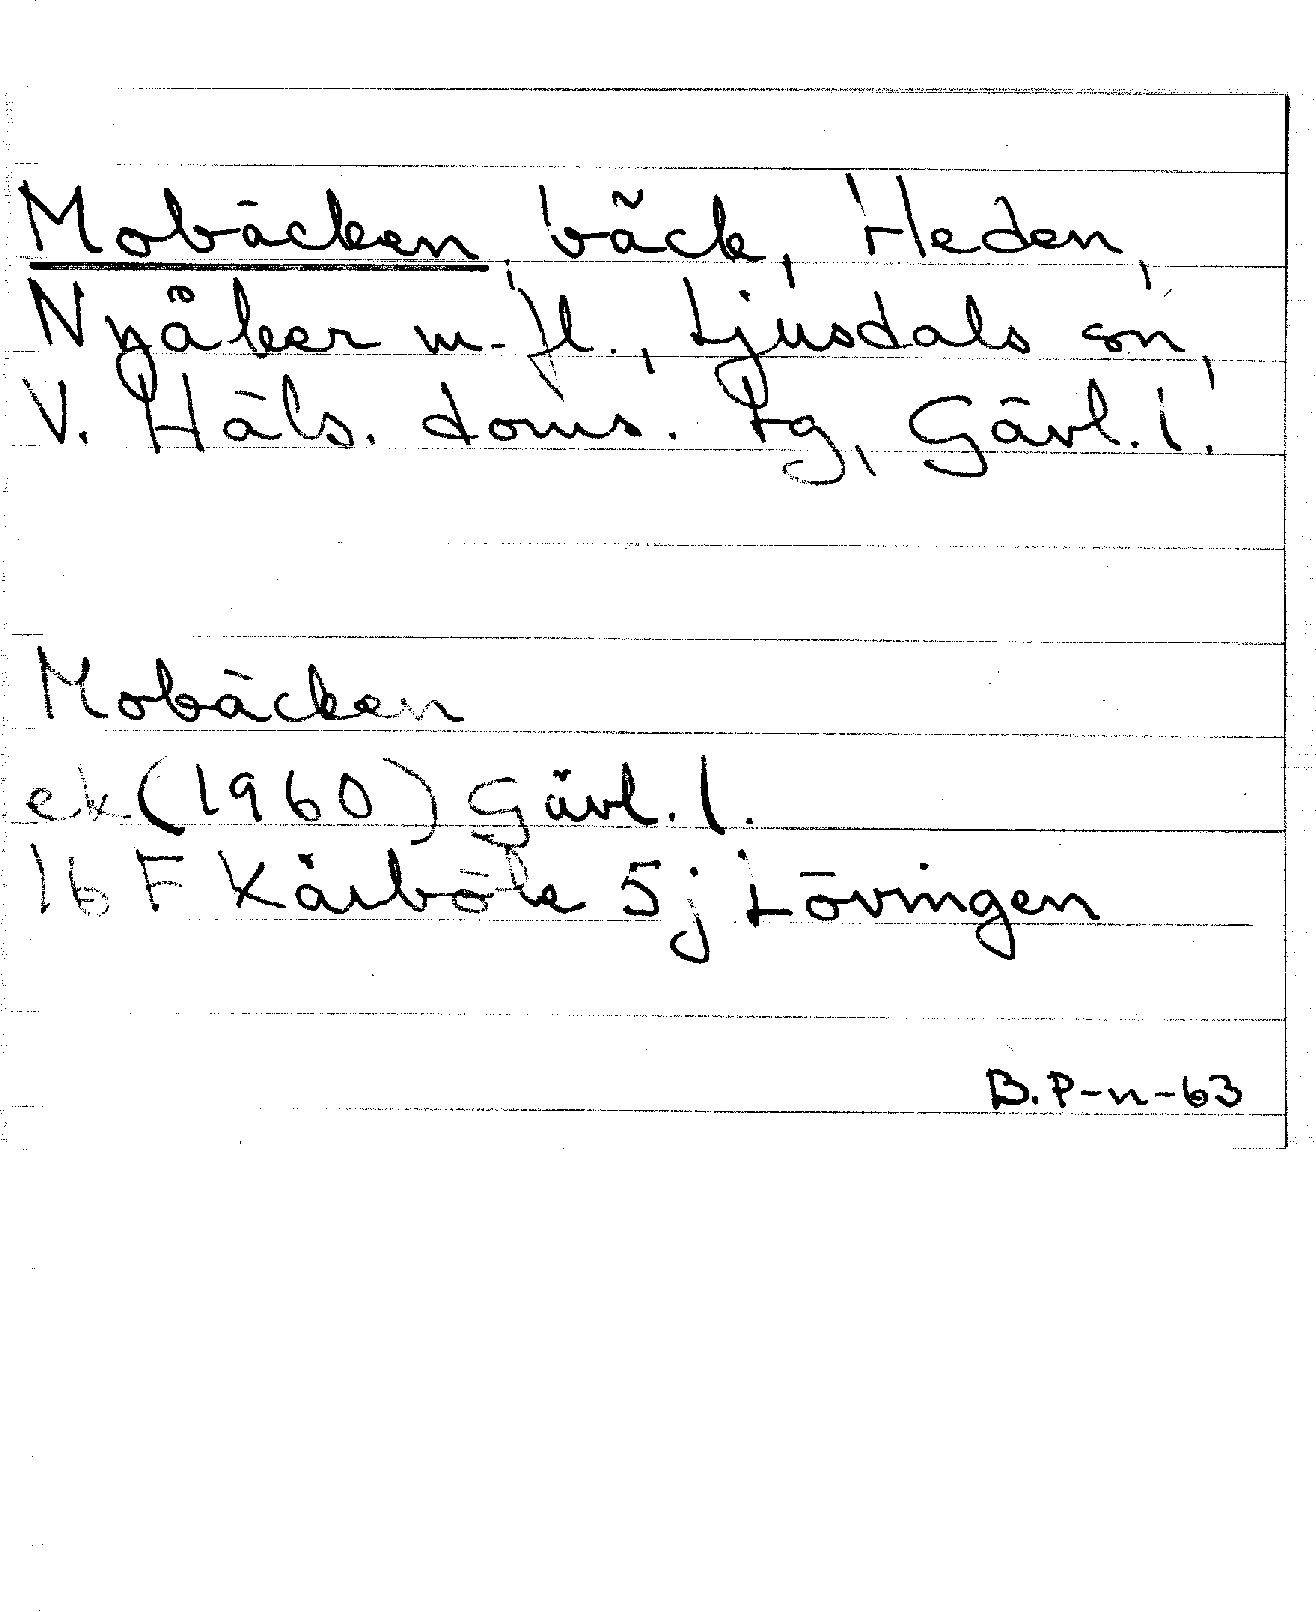 Mobäcken, bäck, Heden,
Nyåker m.fl., Ljusdals sn,
V. Häls. doms. Lg, Gävl. l.
Mobäcken
ek. (1960) Gävl. l.
16 F Kårböle 5j Lövingen
B.P-n-63